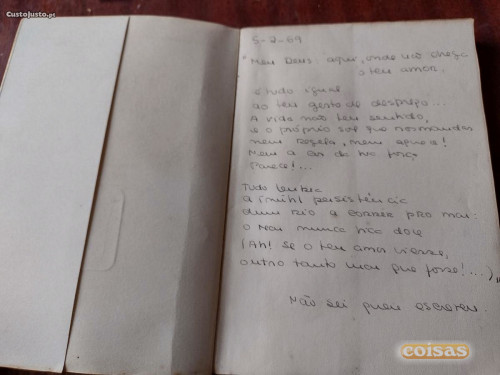 CustoJusto.pt
5-2-69
"Meu Deus: aqui, onde não chega
o teu amor.
é tudo igual
ao teu gesto de desprezo...
A vida não tem sentido,
e o próprio sol que nos mandas
nem rega, nem
Nem a
Parece!...
Tudo lembra
a inútil persistência
dum rio a correr pro mar:
o mar nunca
(Ah! Se o teu amor viesse,
outro tanto mar que fosse!...)"
Não sei quem escreveu.
coisas